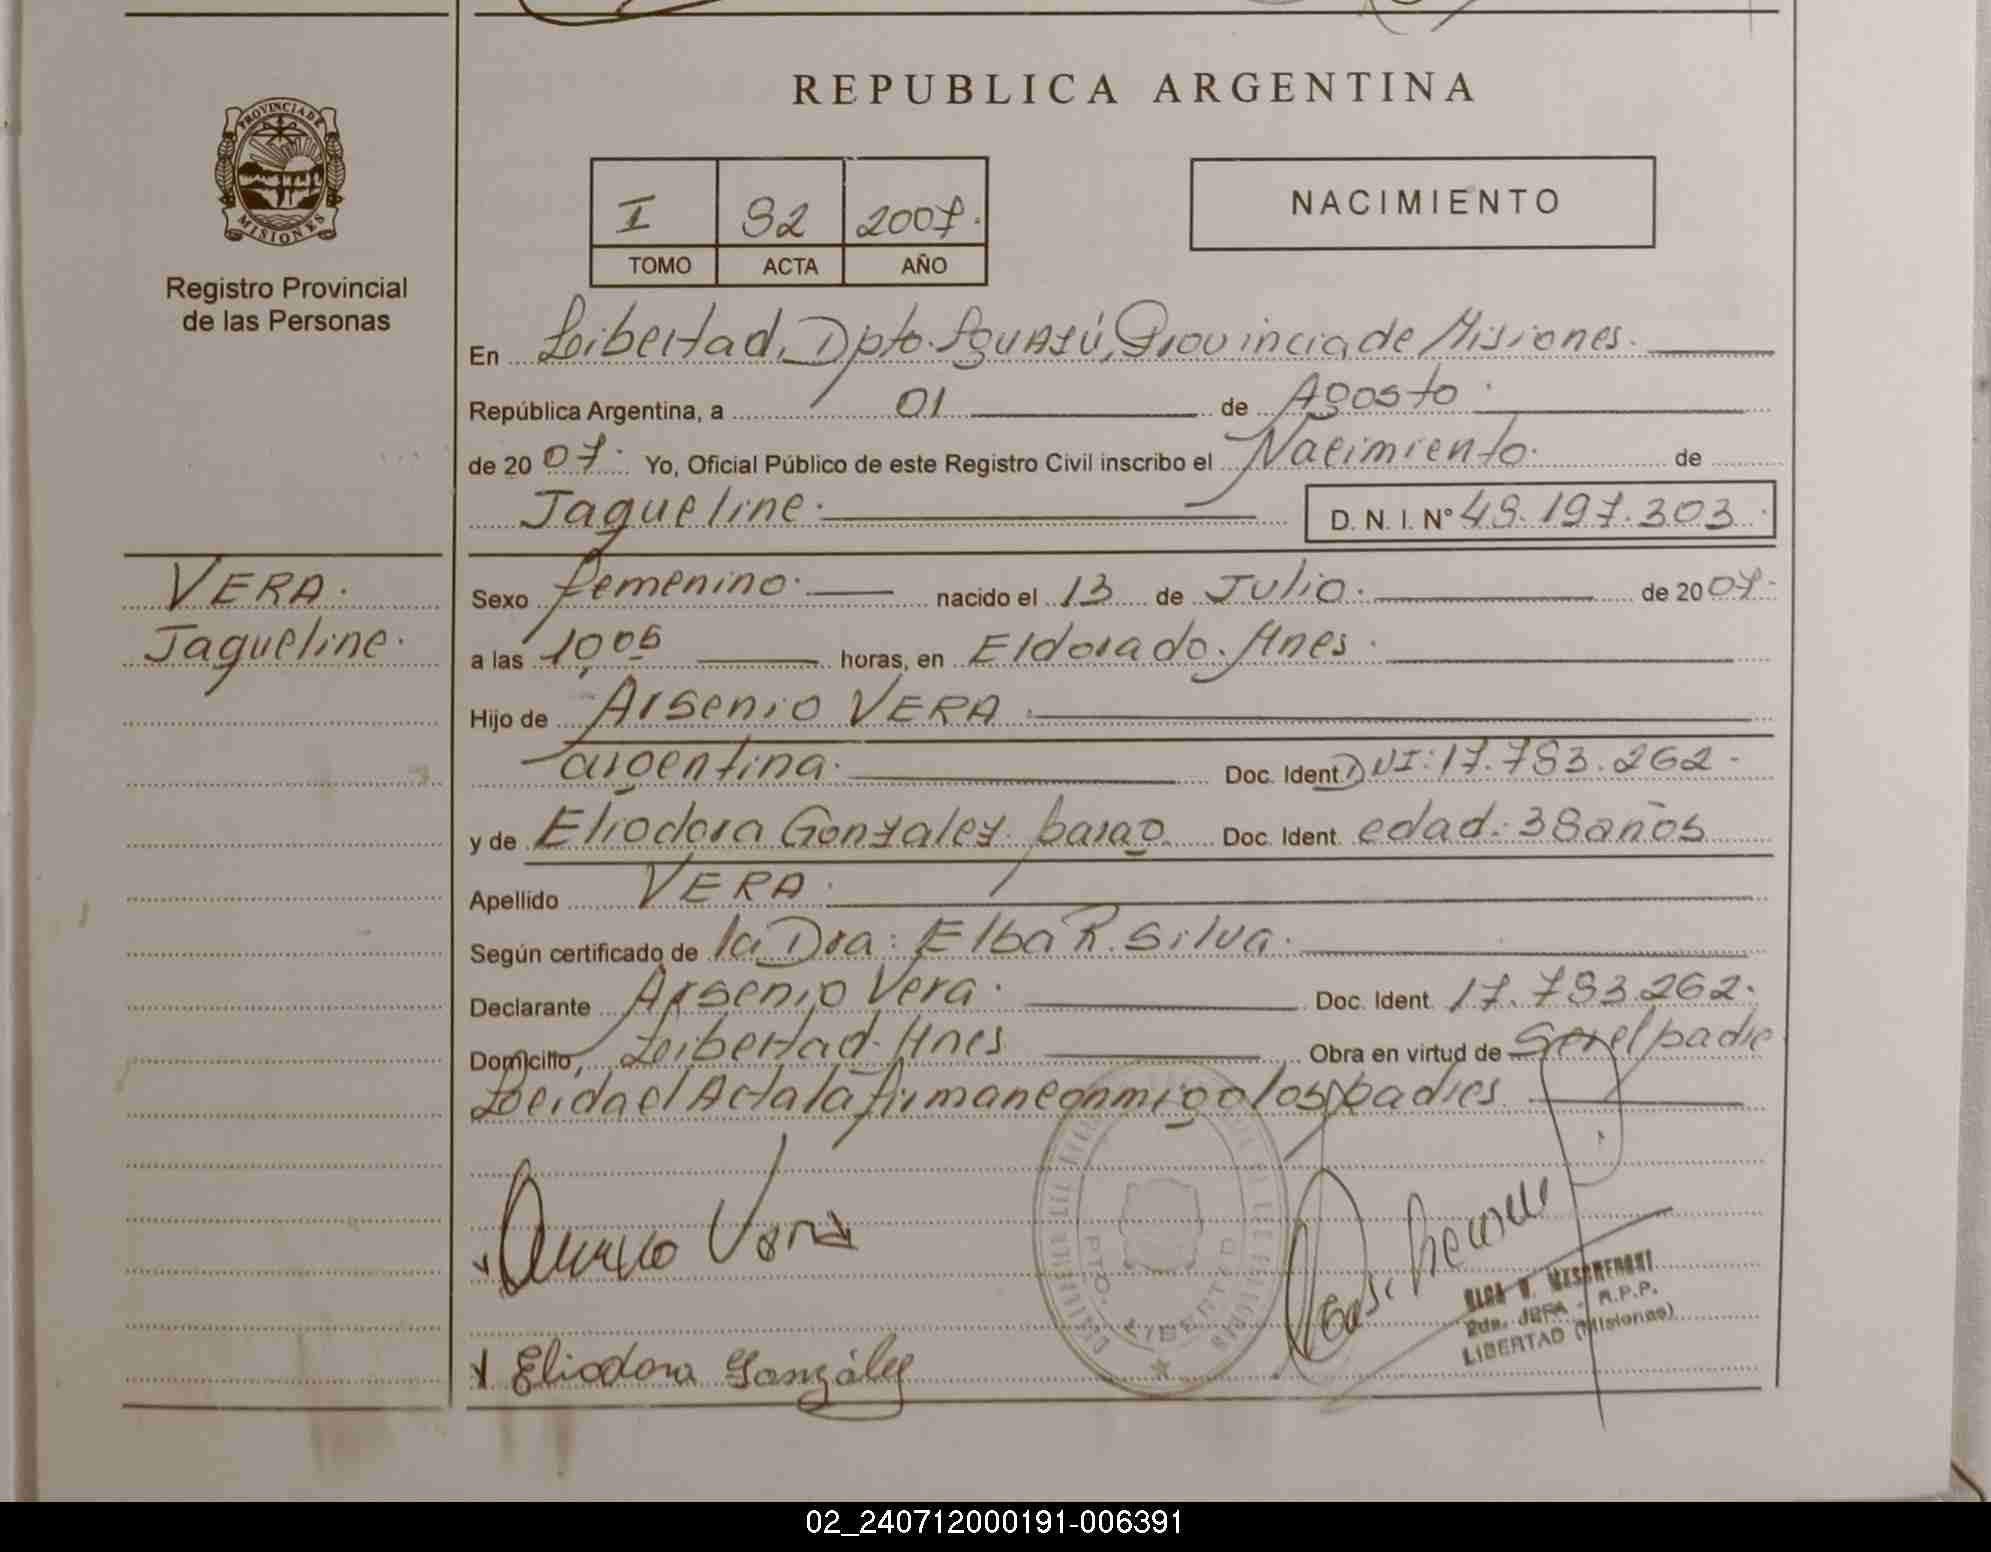 REPUBLICA ARGENTINA
PROVINCIA DE
MISIONES
Registro Provincial
de las Personas
I 92 2007.
TOMO ACTA AÑO
NACIMIENTO
En Libertad, Dpto. Iguazú, Provincia de Misiones.
República Argentina, a 01 de Agosto.
de 20 07. Yo, Oficial Público de este Registro Civil inscribo el Nacimiento. de
Jaqueline. D. N. I. N° 48.197.303.
VERA.
Jaqueline.
Sexo femenino. nacido el 13 de Julio. de 2007.
a las 10,05 horas, en Eldorado. Mnes.
Hijo de Arsenio VERA.
argentina. Doc. Ident. DNI: 17.783.262.
y de Eliodora Gonzalez. parag. Doc. Ident. edad: 38 años
Apellido VERA.
Según certificado de la Dra: Elba R. Silva.
Declarante Arsenio Vera. Doc. Ident. 17.783.262.
Domicilio, Libertad. Mnes Obra en virtud de Ser el padre
Leida el Acta la firman conmigo los padres
Vera
PTO. LIBERTAD
2da. JEFA - R.P.P.
LIBERTAD (Misiones)
Eliodora González
02_240712000191-006391